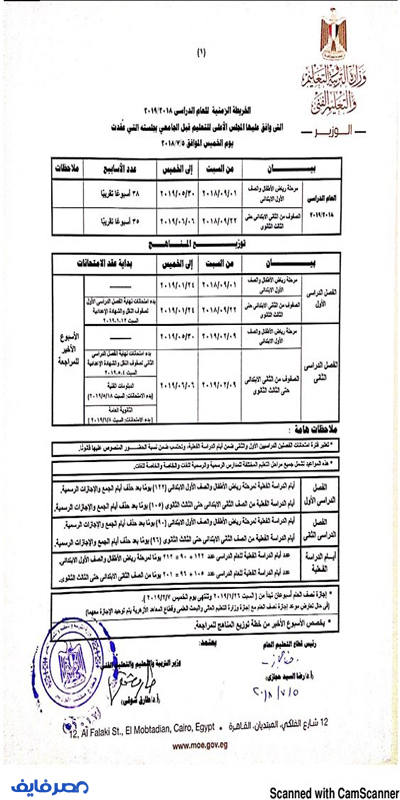 (١)
وزارة التربية والتعليم
والتعليم الفنى
الوزير
الخريطة الزمنية للعام الدراسى ٢٠١٩/٢٠١٨
التى وافق عليها المجلس الأعلى للتعليم قبل الجامعي بجلسته التي عقدت
يوم الخميس الموافق ٢٠١٨/٧/٥
بيـــان من السبت إلى الخميس عدد الأسابيع ملاحظات
العام الدراسى ٢٠١٩/٢٠١٨
مرحلة رياض الأطفال والصف الأول الابتدائى ٢٠١٨/٠٩/٠١ ٢٠١٩/٠٥/٣٠ ٣٨ أسبوعًا تقريبًا
الصفوف من الثانى الابتدائى حتى الثالث الثانوى ٢٠١٨/٠٩/٢٢ ٢٠١٩/٠٦/٠٦ ٣٥ أسبوعًا تقريبًا
توزيـــع المنـاهـــج
بيـــان من السبت إلى الخميس بداية عقد الامتحانات ملاحظات
الفصل الدراسى الأول
مرحلة رياض الأطفال والصف الأول الابتدائى ٢٠١٨/٠٩/٠١ ٢٠١٩/٠١/٢٤
الصفوف من الثانى الابتدائى حتى الثالث الثانوى ٢٠١٨/٠٩/٢٢ ٢٠١٩/٠١/٢٤
بدء امتحانات نهاية الفصل الدراسى الأول
لصفوف النقل والشهادة الإعدادية
السبت ٢٠١٩.١.١٢
الأسبوع الأخير للمراجعة
الفصل الدراسى الثانى
مرحلة رياض الأطفال والصف الأول الابتدائى ٢٠١٩/٠٢/٠٩ ٢٠١٩/٠٥/٣٠
الصفوف من الثانى الابتدائى حتى الثالث الثانوى ٢٠١٩/٠٢/٠٩ ٢٠١٩/٠٦/٠٦
بدء امتحانات نهاية الفصل الدراسى
الثانى لصفوف النقل والشهادة الإعدادية
السبت ٢٠١٩.٥.٤
الدبلومات الفنية
(بدء الامتحانات: السبت ٢٠١٩/٥/١٨)
الثانوية العامة
(بدء الامتحانات: السبت ٢٠١٩/٦/٨)
ملاحظات هامة:
* تعتبر فترة امتحانات الفصلين الدراسيين الأول والثانى ضمن أيام الدراسة الفعلية، وتحتسب ضمن نسبة الحضور المنصوص عليها قانونًا.
* هذه المواعيد تشمل جميع مراحل التعليم المختلفة للمدارس الرسمية والرسمية للغات والخاصة والخاصة للغات.
الفصل الدراسى الأول
أيام الدراسة الفعلية لمرحلة رياض الأطفال والصف الأول الابتدائى (١٢٢) يومًا بعد حذف أيام الجمع والإجازات الرسمية.
أيام الدراسة الفعلية للصفوف من الثانى الابتدائى حتى الثالث الثانوى (١٠٥) يومًا بعد حذف أيام الجمع والإجازات الرسمية.
الفصل الدراسى الثانى
أيام الدراسة الفعلية لمرحلة رياض الأطفال والصف الأول الابتدائى (٩٠) يومًا بعد حذف أيام الجمع والإجازات الرسمية.
أيام الدراسة الفعلية للصفوف من الثانى الابتدائى حتى الثالث الثانوى (٩٦) يومًا بعد حذف أيام الجمع والإجازات الرسمية.
أيـام الدراسة الفعلية
عدد أيام الدراسة الفعلية للعام الدراسى ١٢٢ + ٩٠ = ٢١٢ يومًا لمرحلة رياض الأطفال والصف الأول الابتدائى.
عدد أيام الدراسة الفعلية للعام الدراسى ١٠٥ + ٩٦ = ٢٠١ يومًا للصفوف من الثانى الابتدائى حتى الثالث الثانوى.
* إجازة نصف العام أسبوعان تبدأ من (السبت ٢٠١٩/١/٢٦ وتنتهى يوم الخميس ٢٠١٩/٢/٧).
(فى حال تعارض موعد إجازة نصف العام مع إجازة وزارة التعليم العالى والبحث العلمى وقطاع المعاهد الأزهرية يتم توحيد الإجازة معهما)
* يخصص الأسبوع الأخير من خطة توزيع المناهج للمراجعة.
رئيس قطاع التعليم العام
أ.د/ رضا السيد حجازى
٢٠١٨/٧/٥
يعتمد:
وزير التربية والتعليم والتعليم الفنى
أ.د/ طارق شوقى
12 شارع الفلكي، المبتديان، القاهرة - 12, Al Falaki St., El Mobtadian, Cairo, Egypt
www.moe.gov.eg
مصر فايف
Scanned with CamScanner